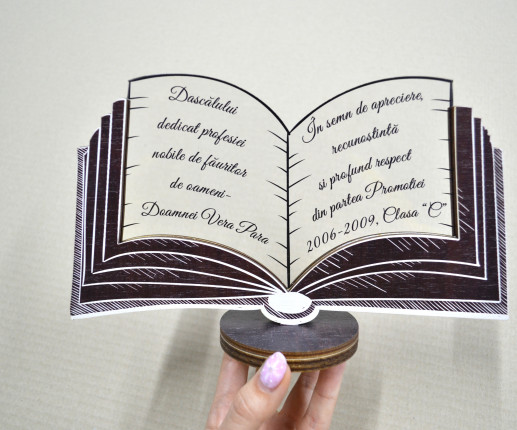 Dascălului
dedicat profesiei
nobile de făuritor
de oameni-
Doamnei Vera Para
În semn de apreciere,
recunostintă
și profund respect
din partea Promoției
2006-2009, Clasa "C"